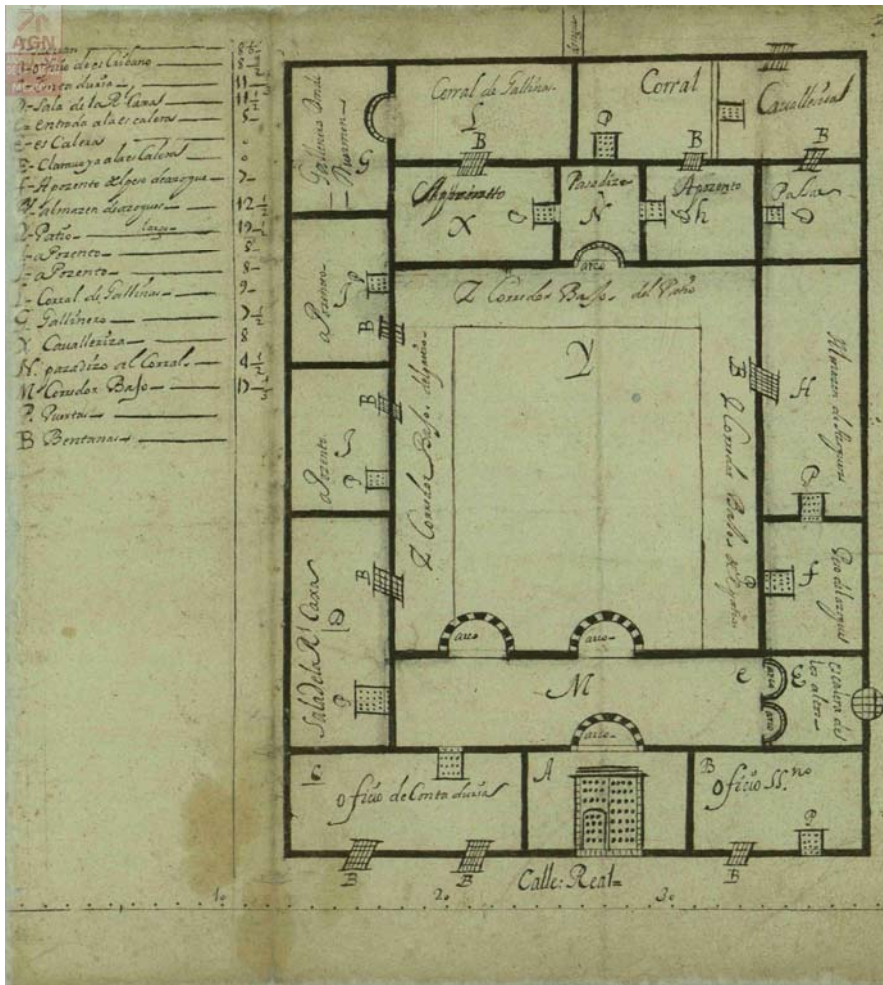 AGN
B- ofiçio de esCribano — 8-
C- Contaduria — 11-
D- Sala de la Rl Caxa — 11-
e- entrada a la escalera — 5-
E- esCalera
f- Aposento del peso de azogue — 7-
H- almazen de azogues — 12 1/2
Y- Patio — largo — 19-
aPozento — 8-
aPozento — 8-
Corral de Gallinas — 9-
G Gallinero — 7 1/2
X Cavalleriza — 8
N. paradizo al Corral — 4 1/2
M Corredor Baxo — 17 1/2
P. Puerta
B Bentanas
Corral de Gallinas
Corral
P
Cavalleriza
B
B
B
Gallinero
G
Aposento
X
Pasadizo
N
Aposento
h
arco
Z Corredor Baxo del Patio
aPosento
P
B
Y
Z Corredor Baxo del patio
B
Z Corredor Baxo del patio
Almazen de Azogues
H
P
B
aPozento
P
Peso del azogue
f
P
B
Sala de la Rl Caxa
D
P
arco
arco
M
e
E
arco
arco
escalera de los altos
arco
C
oficio de Contaduria
A
B
oficio SS.no
P
B
B
B
Calle: Real
10
20
30